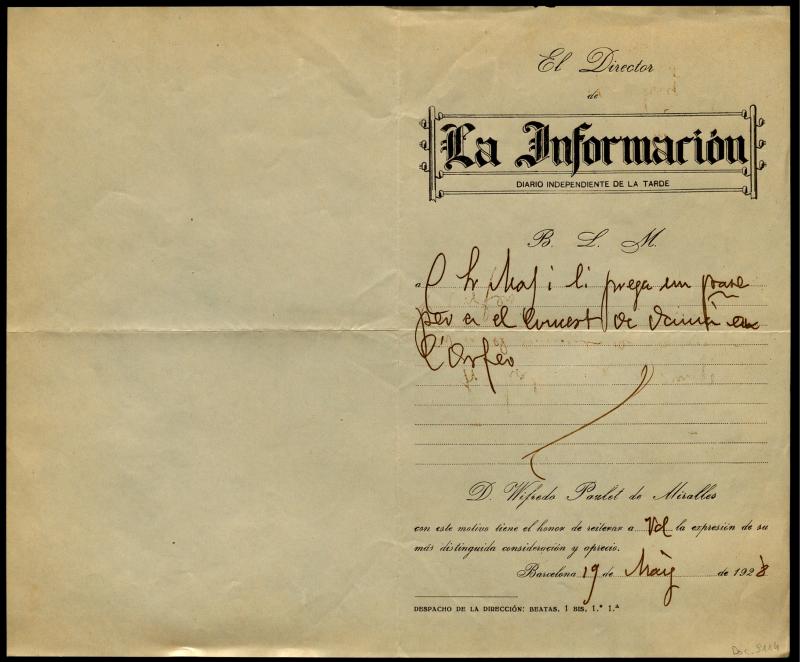 El Director
de
La Información
DIARIO INDEPENDIENTE DE LA TARDE
B. L. M.
a l Sr Mas i li prega un pase
per a el Concert de demà en
l'Orfeo
D. Wifredo Paulet de Miralles
con este motivo tiene el honor de reiterar a Vd la expresión de su
más distinguida consideración y aprecio.
Barcelona 19 de Maig de 1928
DESPACHO DE LA DIRECCIÓN: BEATAS, 1 BIS, 1.º 1.ª
Doc. 9114